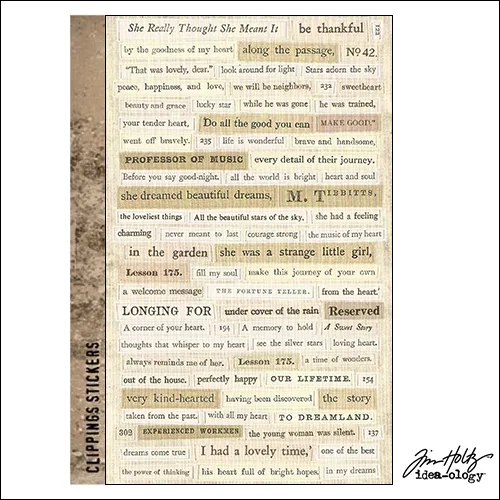 She Really Thought She Meant It be thankful 122
by the goodness of my heart along the passage, No 42.
"That was lovely, dear." look around for light Stars adorn the sky
peace, happiness, and love, we will be neighbors, 232 sweetheart
beauty and grace lucky star while he was gone he was trained,
your tender heart, Do all the good you can MAKE GOOD."
went off bravely. 235 life is wonderful brave and handsome,
PROFESSOR OF MUSIC every detail of their journey.
Before you say good-night. all the world is bright heart and soul
she dreamed beautiful dreams, M. TIBBITTS,
the loveliest things All the beautiful stars of the sky, she had a feeling
charming never meant to last courage strong the music of my heart
in the garden she was a strange little girl,
Lesson 175. fill my soul make this journey of your own
a welcome message THE FORTUNE TELLER. from the heart.'
LONGING FOR under cover of the rain Reserved
A corner of your heart. 194 A memory to hold A Sweet Story
thoughts that whisper to my heart see the silver stars loving heart.
always reminds me of her. Lesson 175. a time of wonders.
out of the house. perfectly happy OUR LIFETIME. 154
very kind-hearted having been discovered the story
taken from the past. with all my heart TO DREAMLAND.
302 EXPERIENCED WORKMEN the young woman was silent. 137
dreams come true I had a lovely time,' one of the best
the power of thinking his heart full of bright hopes. in my dreams
CLIPPINGS STICKERS
Tim Holtz
idea-ology